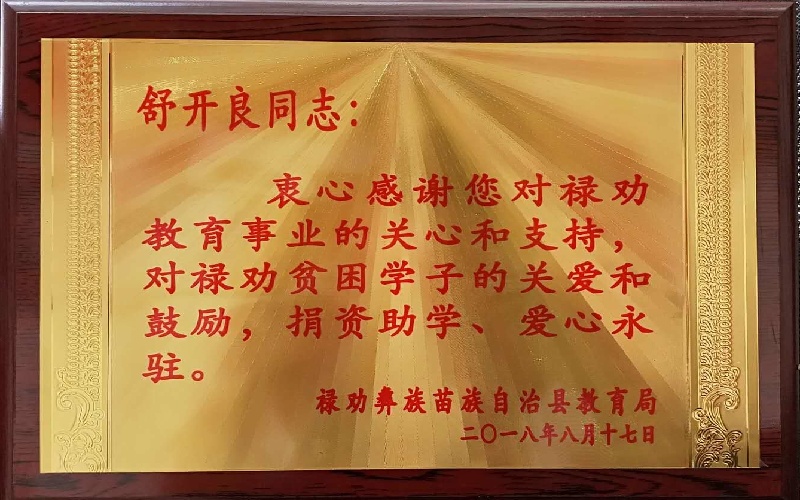 舒开良同志：
衷心感谢您对禄劝
教育事业的关心和支持，
对禄劝贫困学子的关爱和
鼓励，捐资助学、爱心永
驻。
禄劝彝族苗族自治县教育局
二〇一八年八月十七日